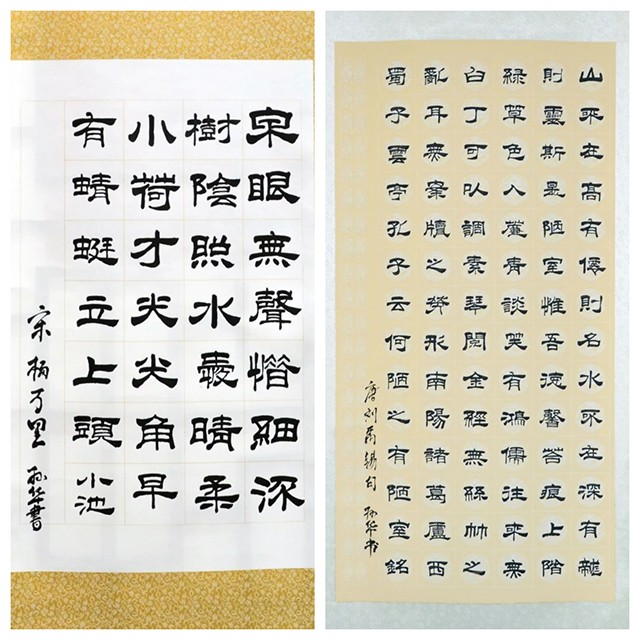 泉眼無聲惜細流
樹陰照水愛晴柔
小荷才尖尖角早
有蜻蜓立上頭 小池
宋 楊万里 孙华書
山不在高有僊則名水不在深有龍
則靈斯是陋室惟吾德馨苔痕上階
綠草色入簾青談笑有鴻儒往來無
白丁可以調素琴閱金經無絲竹之
亂耳無案牘之勞形南陽諸葛廬西
蜀子雲亭孔子云何陋之有陋室銘
唐刘禹锡句 孙华书